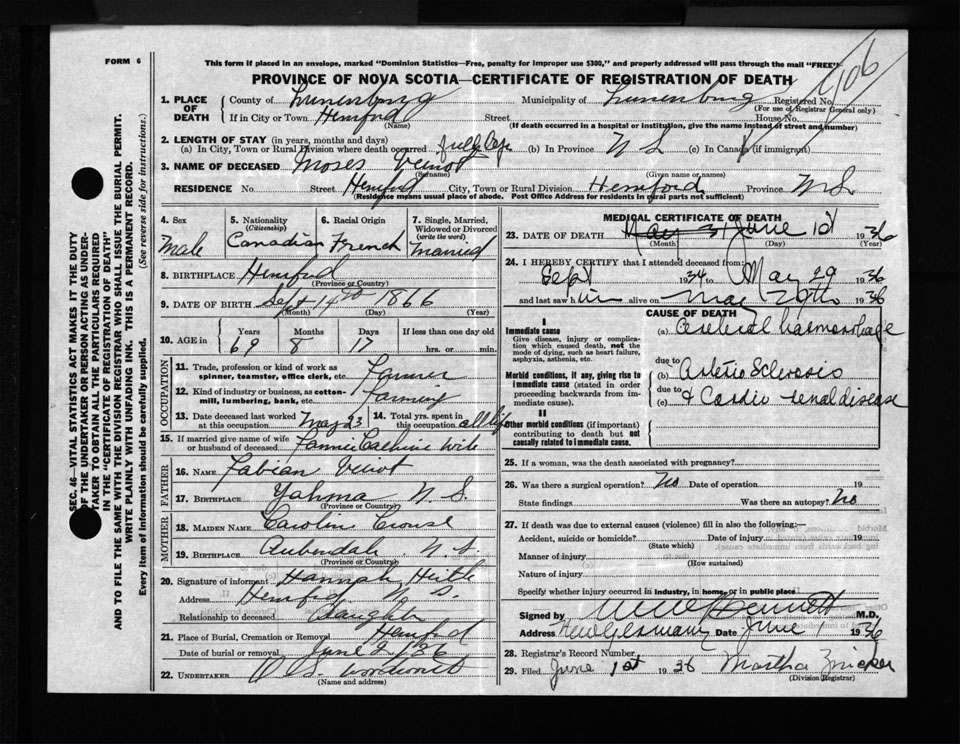 FORM 6
This form if placed in an envelope, marked "Dominion Statistics—Free, penalty for improper use $300," and properly addressed will pass through the mail "FREE"
PROVINCE OF NOVA SCOTIA—CERTIFICATE OF REGISTRATION OF DEATH
1. PLACE OF DEATH
County of Lunenburg Municipality of Lunenburg Registered No.
(For use of Registrar General only)
If in City or Town Hemford Street House No.
(Name) (If death occurred in a hospital or institution, give the name instead of street and number)
2. LENGTH OF STAY (in years, months and days)
(a) In City, Town or Rural Division where death occurred full life (b) In Province N S (c) In Canada (if immigrant)
3. NAME OF DECEASED Moses Veinot
(Surname) (Given name or names)
RESIDENCE No Street Hemford City, Town or Rural Division Hemford Province N.S.
(Residence means usual place of abode. Post Office Address for residents in rural parts not sufficient)
4. Sex Male
5. Nationality (Citizenship) Canadian
6. Racial Origin French
7. Single, Married, Widowed or Divorced (write the word) Married
8. BIRTHPLACE Hemford
(Province or Country)
9. DATE OF BIRTH Sept 14 1866
(Month) (Day) (Year)
10. AGE in Years Months Days If less than one day old
69 8 17 hrs. or min.
OCCUPATION
11. Trade, profession or kind of work as spinner, teamster, office clerk, etc. Farmer
12. Kind of industry or business, as cotton-mill, lumbering, bank, etc. Farming
13. Date deceased last worked at this occupation May 23
14. Total yrs. spent in this occupation all life
15. If married give name of wife or husband of deceased Fannie Wife
FATHER
16. NAME Fabian Veinot
17. BIRTHPLACE N. S.
(Province or Country)
MOTHER
18. MAIDEN NAME Carolin Crouse
19. BIRTHPLACE N. S.
(Province or Country)
20. Signature of informant Hannah
Address Hemford N S.
Relationship to deceased Daughter
21. Place of Burial, Cremation or Removal Hemford
Date of burial or removal June 2 / 36
22. UNDERTAKER
(Name and address)
MEDICAL CERTIFICATE OF DEATH
23. DATE OF DEATH May 31 June 1st 1936
(Month) (Day) (Year)
24. I HEREBY CERTIFY that I attended deceased from:
Sept 1934 to May 29 1936
and last saw him alive on May 29th 1936
CAUSE OF DEATH
I
Immediate cause
Give disease, injury or complication which caused death, not the mode of dying, such as heart failure, asphyxia, asthenia, etc.
(a) Cerebral haemorrhage
due to
Morbid conditions, if any, giving rise to immediate cause (stated in order proceeding backwards from immediate cause).
(b) Arterio Sclerosis
due to
(c) & Cardio renal disease
II
Other morbid conditions (if important) contributing to death but not causally related to immediate cause.
25. If a woman, was the death associated with pregnancy?
26. Was there a surgical operation? No Date of operation 19
State findings Was there an autopsy? No
27. If death was due to external causes (violence) fill in also the following:—
Accident, suicide or homicide? Date of injury 19
(State which)
Manner of injury
(How sustained)
Nature of injury
Specify whether injury occurred in industry, in home, or in public place
Signed by Bennett M.D.
Address New Germany Date June 1 1936
28. Registrar's Record Number
29. Filed June 1st 1936 Martha Zwicker
(Division Registrar)
SEC. 46—VITAL STATISTICS ACT MAKES IT THE DUTY
OF THE UNDERTAKER OR PERSON ACTING AS UNDER-
TAKER TO OBTAIN ALL THE PARTICULARS REQUIRED
IN THE "CERTIFICATE OF REGISTRATION OF DEATH"
AND TO FILE THE SAME WITH THE DIVISION REGISTRAR WHO SHALL ISSUE THE BURIAL PERMIT.
WRITE PLAINLY WITH UNFADING INK. THIS IS A PERMANENT RECORD.
Every item of information should be carefully supplied. (See reverse side for instructions.)